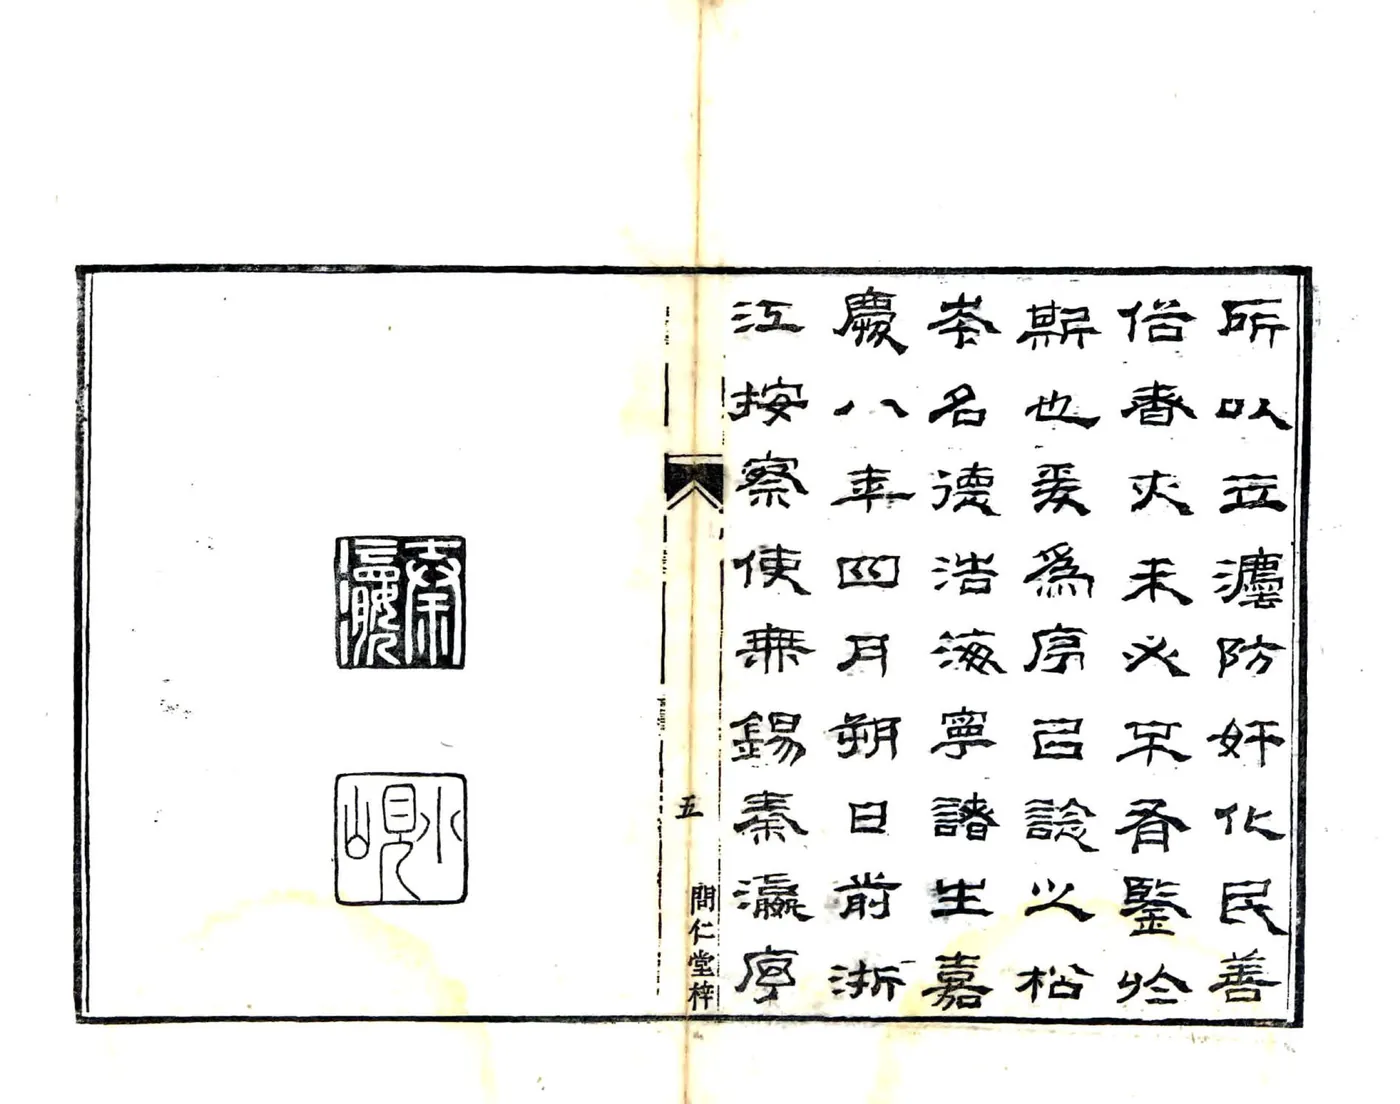 所以立灋防奸化民善
俗者亦未必不有鑒於
斯也爰爲序㠯諗之松
岑名德浩海寧諸生嘉
慶八年四月朔日前浙
江按察使無錫秦瀛序
五
問仁堂梓
秦瀛
小峴